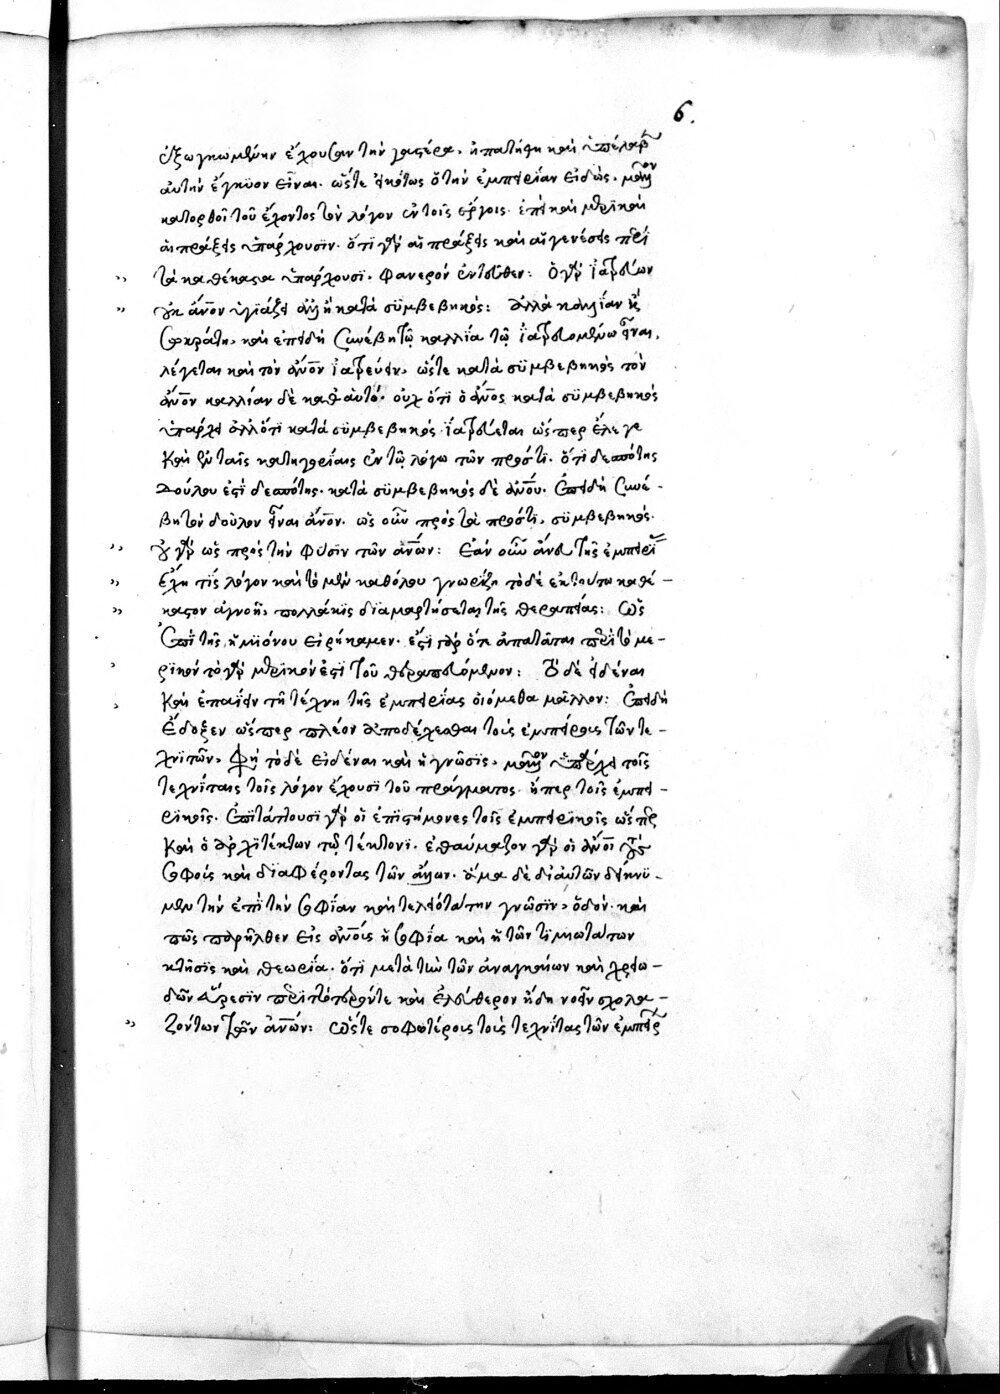 6.
ἐξωγκωμένην ἔχουσαν τὴν γαστέρα, ἠπατήθη καὶ ὑπέλαβ
αὐτὴν ἔγκυον εἶναι. ὥστε εἰκότως ὁ τὴν ἐμπειρίαν εἰδὼς, μᾶλλον
κατορθοῖ τοῦ ἔχοντος τὸν λόγον ἐν τοῖς ἔργοις. ἐπεὶ καὶ μερικαὶ
αἱ πράξεις ὑπάρχουσιν. ὅτι γὰρ αἱ πράξεις καὶ αἱ γενέσεις περὶ
τὰ καθέκαστα ὑπάρχουσι. φανερὸν ἐντεῦθεν: Ὁ γὰρ ἰατρεύων
οὐκ ἄνον ὑγιάζει ἀλλ' ἢ κατὰ συμβεβηκός: ἀλλὰ καλλίαν ἢ
Σωκράτη, καὶ ἐπειδὴ συνέβη τῷ καλλία τῷ ἰατρευομένω εἶναι,
λέγεται καὶ τὸν ἄνον ἰατρεύειν, ὥστε κατὰ συμβεβηκὸς τὸν
ἄνον καλλίαν δὲ καθ αὑτό. οὐχ ὅτι ὁ ἄνος κατὰ συμβεβηκός
ὑπάρχει ἀλλ' ὅτι κατὰ συμβεβηκός ἰατρεύεται ὥσπερ ἔλεγε
καὶ ἐν ταῖς κατηγορίαις ἐν τῷ λόγω τῶν πρός τι. ὅτι δεσπότης
δούλου ἐστὶ δεσπότης. κατὰ συμβεβηκὸς δὲ ἄνου. ἐπειδὴ συνέ-
βη τὸν δοῦλον εἶναι ἄνον. ὡς οὖν πρὸς τὰ πρός τι, συμβεβηκός.
οὐ γὰρ ὡς πρὸς τὴν φύσιν τῶν ἄνων: Ἐὰν οὖν ἄνευ τῆς ἐμπειρί
ἔχη τὶς λόγον καὶ τὸ μὲν καθόλου γνωρίζη τὸ δὲ ἐν τούτω καθέ-
καστον ἀγνοῆ, πολλάκις διαμαρτήσεται τῆς θεραπείας: Ὡς
ἐπὶ τῆς ἡμιόνου εἰρήκαμεν. ἔστι γὰρ ὅτε ἀπατᾶται περὶ τὸ με-
ρικόν τὸ γὰρ μερικόν ἐστι τοῦ θεραπευόμενον: Τὸ δὲ εἰδέναι
καὶ ἐπαΐειν τῆ τέχνη τῆς ἐμπειρίας οἰόμεθα μᾶλλον: Ἐπειδὴ
ἔδοξεν ὥσπερ πλέον ἀποδέχεσθαι τοὺς ἐμπείρους τῶν τε-
χνιτῶν, φησὶ τὸ δὲ εἰδέναι καὶ ἡ γνῶσις, μᾶλλον ὑπάρχει τοῖς
τεχνίταις τοῖς λόγον ἔχουσι τοῦ πράγματος. ἤπερ τοῖς ἐμπει-
ρικοῖς. Ἐπιτάττουσι γὰρ οἱ ἐπιστήμονες τοῖς ἐμπειρικοῖς ὥσπερ
καὶ ὁ ἀρχιτέκτων τῷ τέκτονι. ἐθαύμαζον γὰρ οἱ ἄνοι τοὺς
σοφοὺς καὶ διαφέροντας τῶν ἄλλων. ἅμα δὲ δι αὐτῶν δείκνυ-
μεν τὴν ἐπὶ τὴν σοφίαν καὶ τελεότάτην γνῶσιν, ὁδόν. καὶ
πῶς παρῆλθεν εἰς ἄνους ἡ σοφία καὶ ἡ τῶν τιμιωτάτων
κτῆσις καὶ θεωρία. ὅτι μετὰ τὴν τῶν ἀναγκαίων καὶ χρειω-
δῶν εὕρεσιν περὶ τὸ τερπνόν τε καὶ ἐλεύθερον ἤδη νοεῖν σχολα-
ζόντων τῶν ἄνων: Ὥστε σοφωτέρους τοὺς τεχνίτας τῶν ἐμπείρ